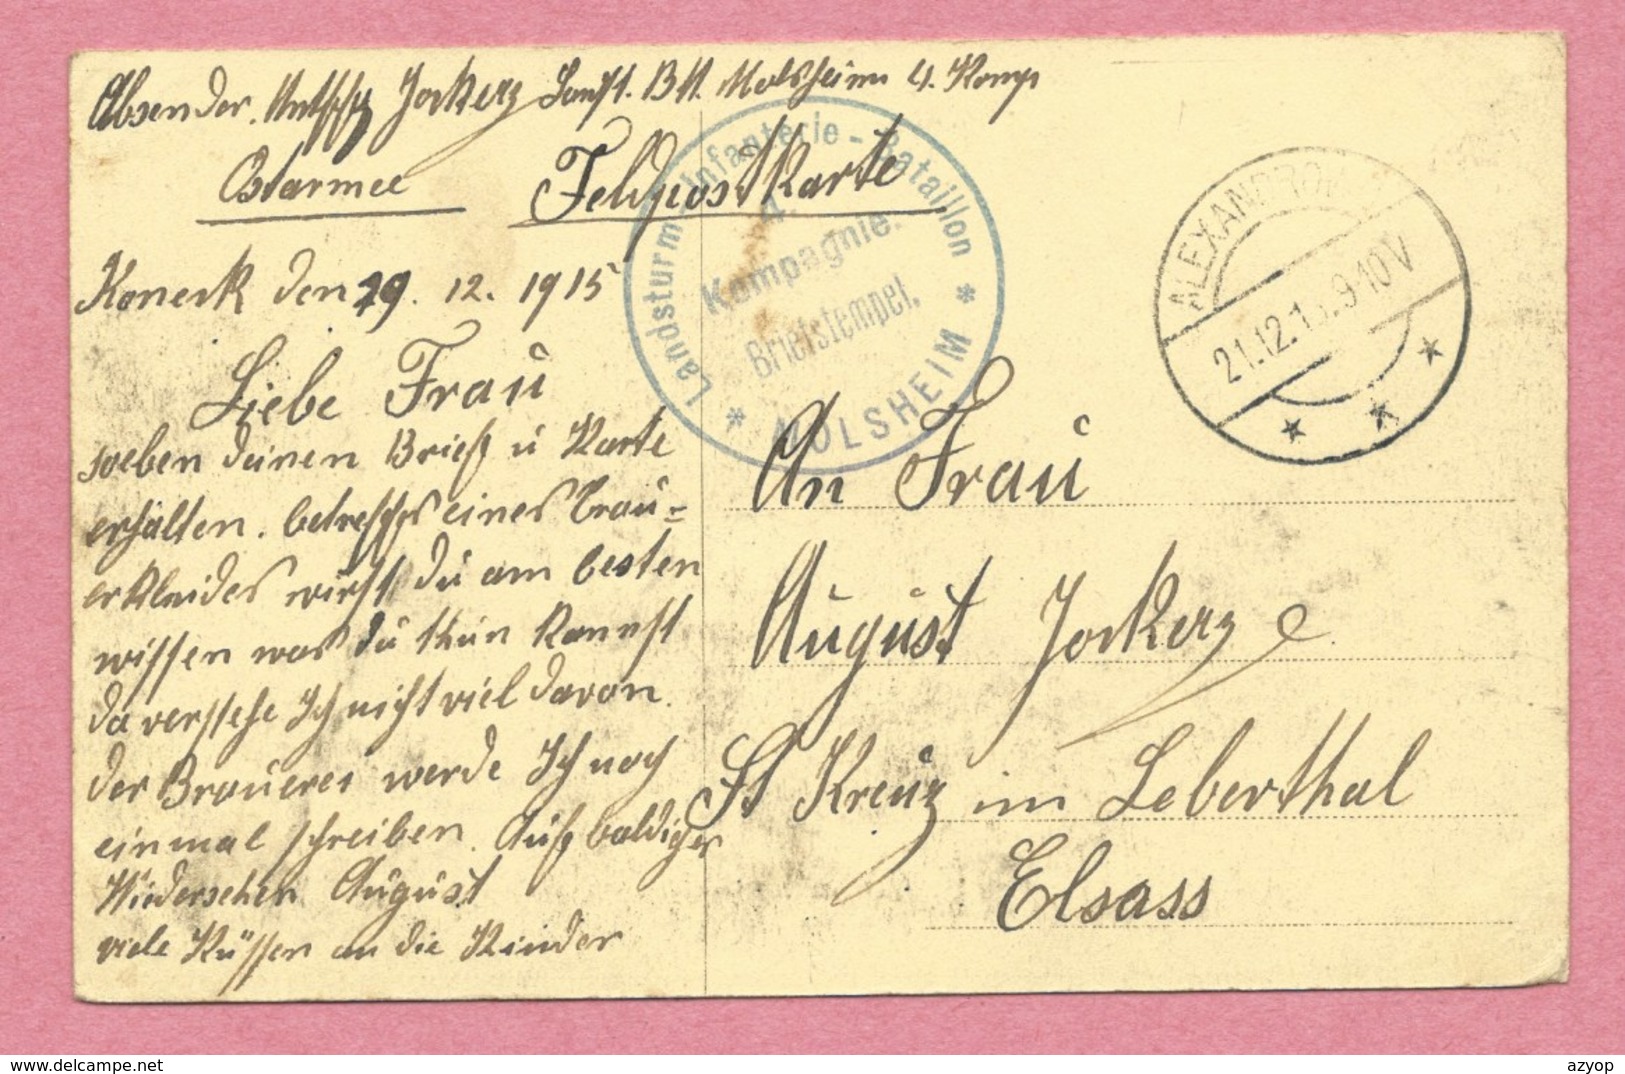 Absender. Untffz Jockerz Landst. Btl. Molsheim 4. Komp
Ostarmee Feldpostkarte
Koneck den 19. 12. 1915
Liebe Frau
soeben deinen Brief u Karte
erhalten. betreffs eines Trau-
erkleides wirst du am besten
wissen was du thun kannst
da verstehe Ich nicht viel davon.
der Brauerei werde Ich noch
einmal schreiben. Auf baldiges
Wiedersehen August
viele Küssen an die Kinder
Landsturm-Infanterie-Bataillon
4.
Kompagnie.
Briefstempel.
* MOLSHEIM *
ALEXANDROW
21.12.15. 9-10V
* * *
An Frau
August Jockerz
St Kreuz im Leberthal
Elsass
azyop